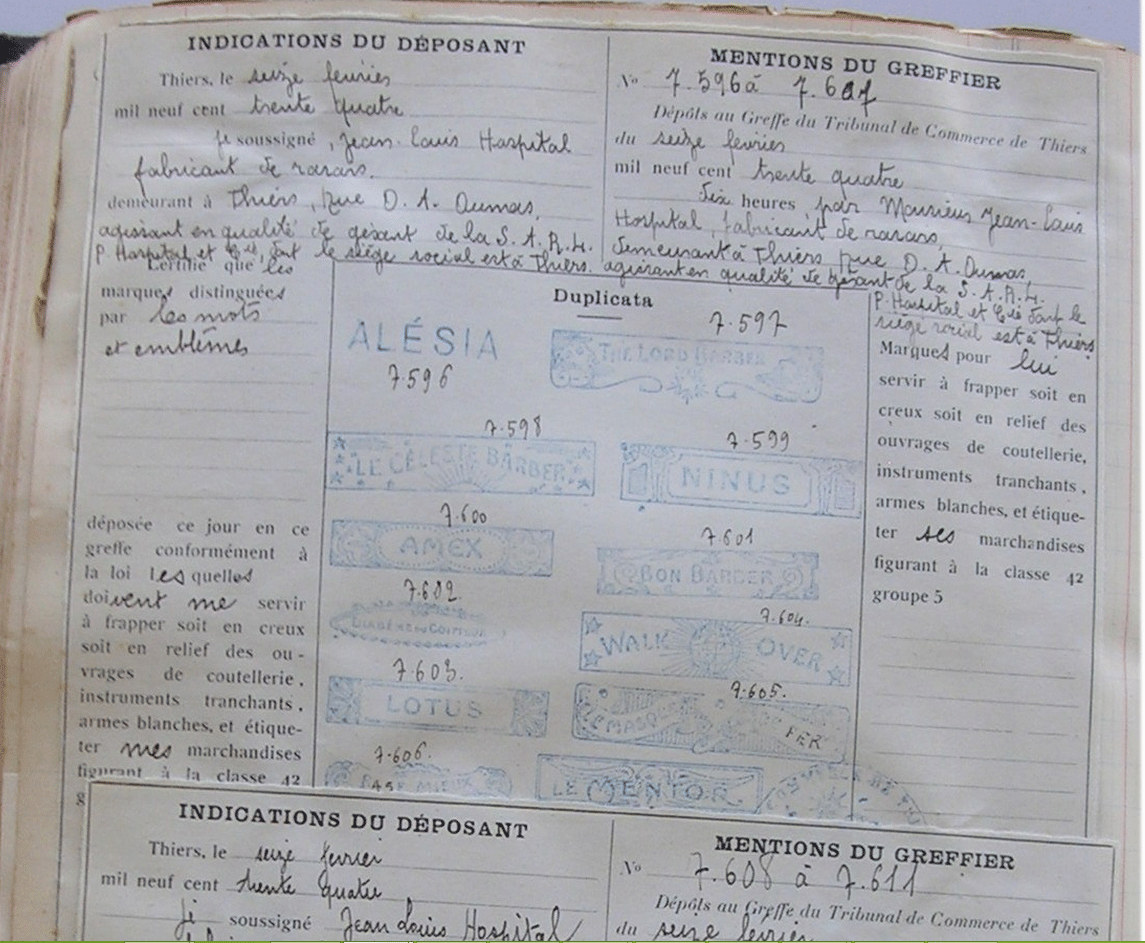 INDICATIONS DU DÉPOSANT
Thiers, le seize fevrier
mil neuf cent trente quatre
je soussigné, Jean-Louis Hospital
fabricant de rasoirs.
demeurant à Thiers, rue D. A. Dumas,
agissant en qualité de gérant de la S. A. R. L.
P. Hospital et Cie, dont le siège social est à Thiers.
Certifie que les
marques distinguées
par les mots
et emblêmes
déposée ce jour en ce
greffe conformément à
la loi lesquelles
doivent me servir
à frapper soit en creux
soit en relief des ou-
vrages de coutellerie,
instruments tranchants,
armes blanches, et étique-
ter mes marchandises
figurant à la classe 42
g
MENTIONS DU GREFFIER
No 7.596 à 7.607
Dépôts au Greffe du Tribunal de Commerce de Thiers
du seize fevrier
mil neuf cent trente quatre
Dix heures, par Monsieur Jean-Louis
Hospital, fabricant de rasoirs,
demeurant à Thiers, rue D. A. Dumas,
agissant en qualité de gérant de la S. A. R. L.
P. Hospital et Cie dont le
siège social est à Thiers
Marques pour lui
servir à frapper soit en
creux soit en relief des
ouvrages de coutellerie,
instruments tranchants,
armes blanches, et étique-
ter ses marchandises
figurant à la classe 42
groupe 5
Duplicata
ALÉSIA
7.596
7.597
THE LORD BARBER
7.598
LE CÉLESTE BARBER
7.599
NINUS
7.600
AMEX
7.601
BON BARBER
7.602.
7.604.
WALK OVER
7.603.
LOTUS
7.605.
LE MASQUE DE FER
7.606.
LE MENTOR
INDICATIONS DU DÉPOSANT
Thiers, le seize fevrier
mil neuf cent trente quatre
je soussigné Jean Louis Hospital
MENTIONS DU GREFFIER
No 7.608 à 7.611
Dépôts au Greffe du Tribunal de Commerce de Thiers
du seize fevrier